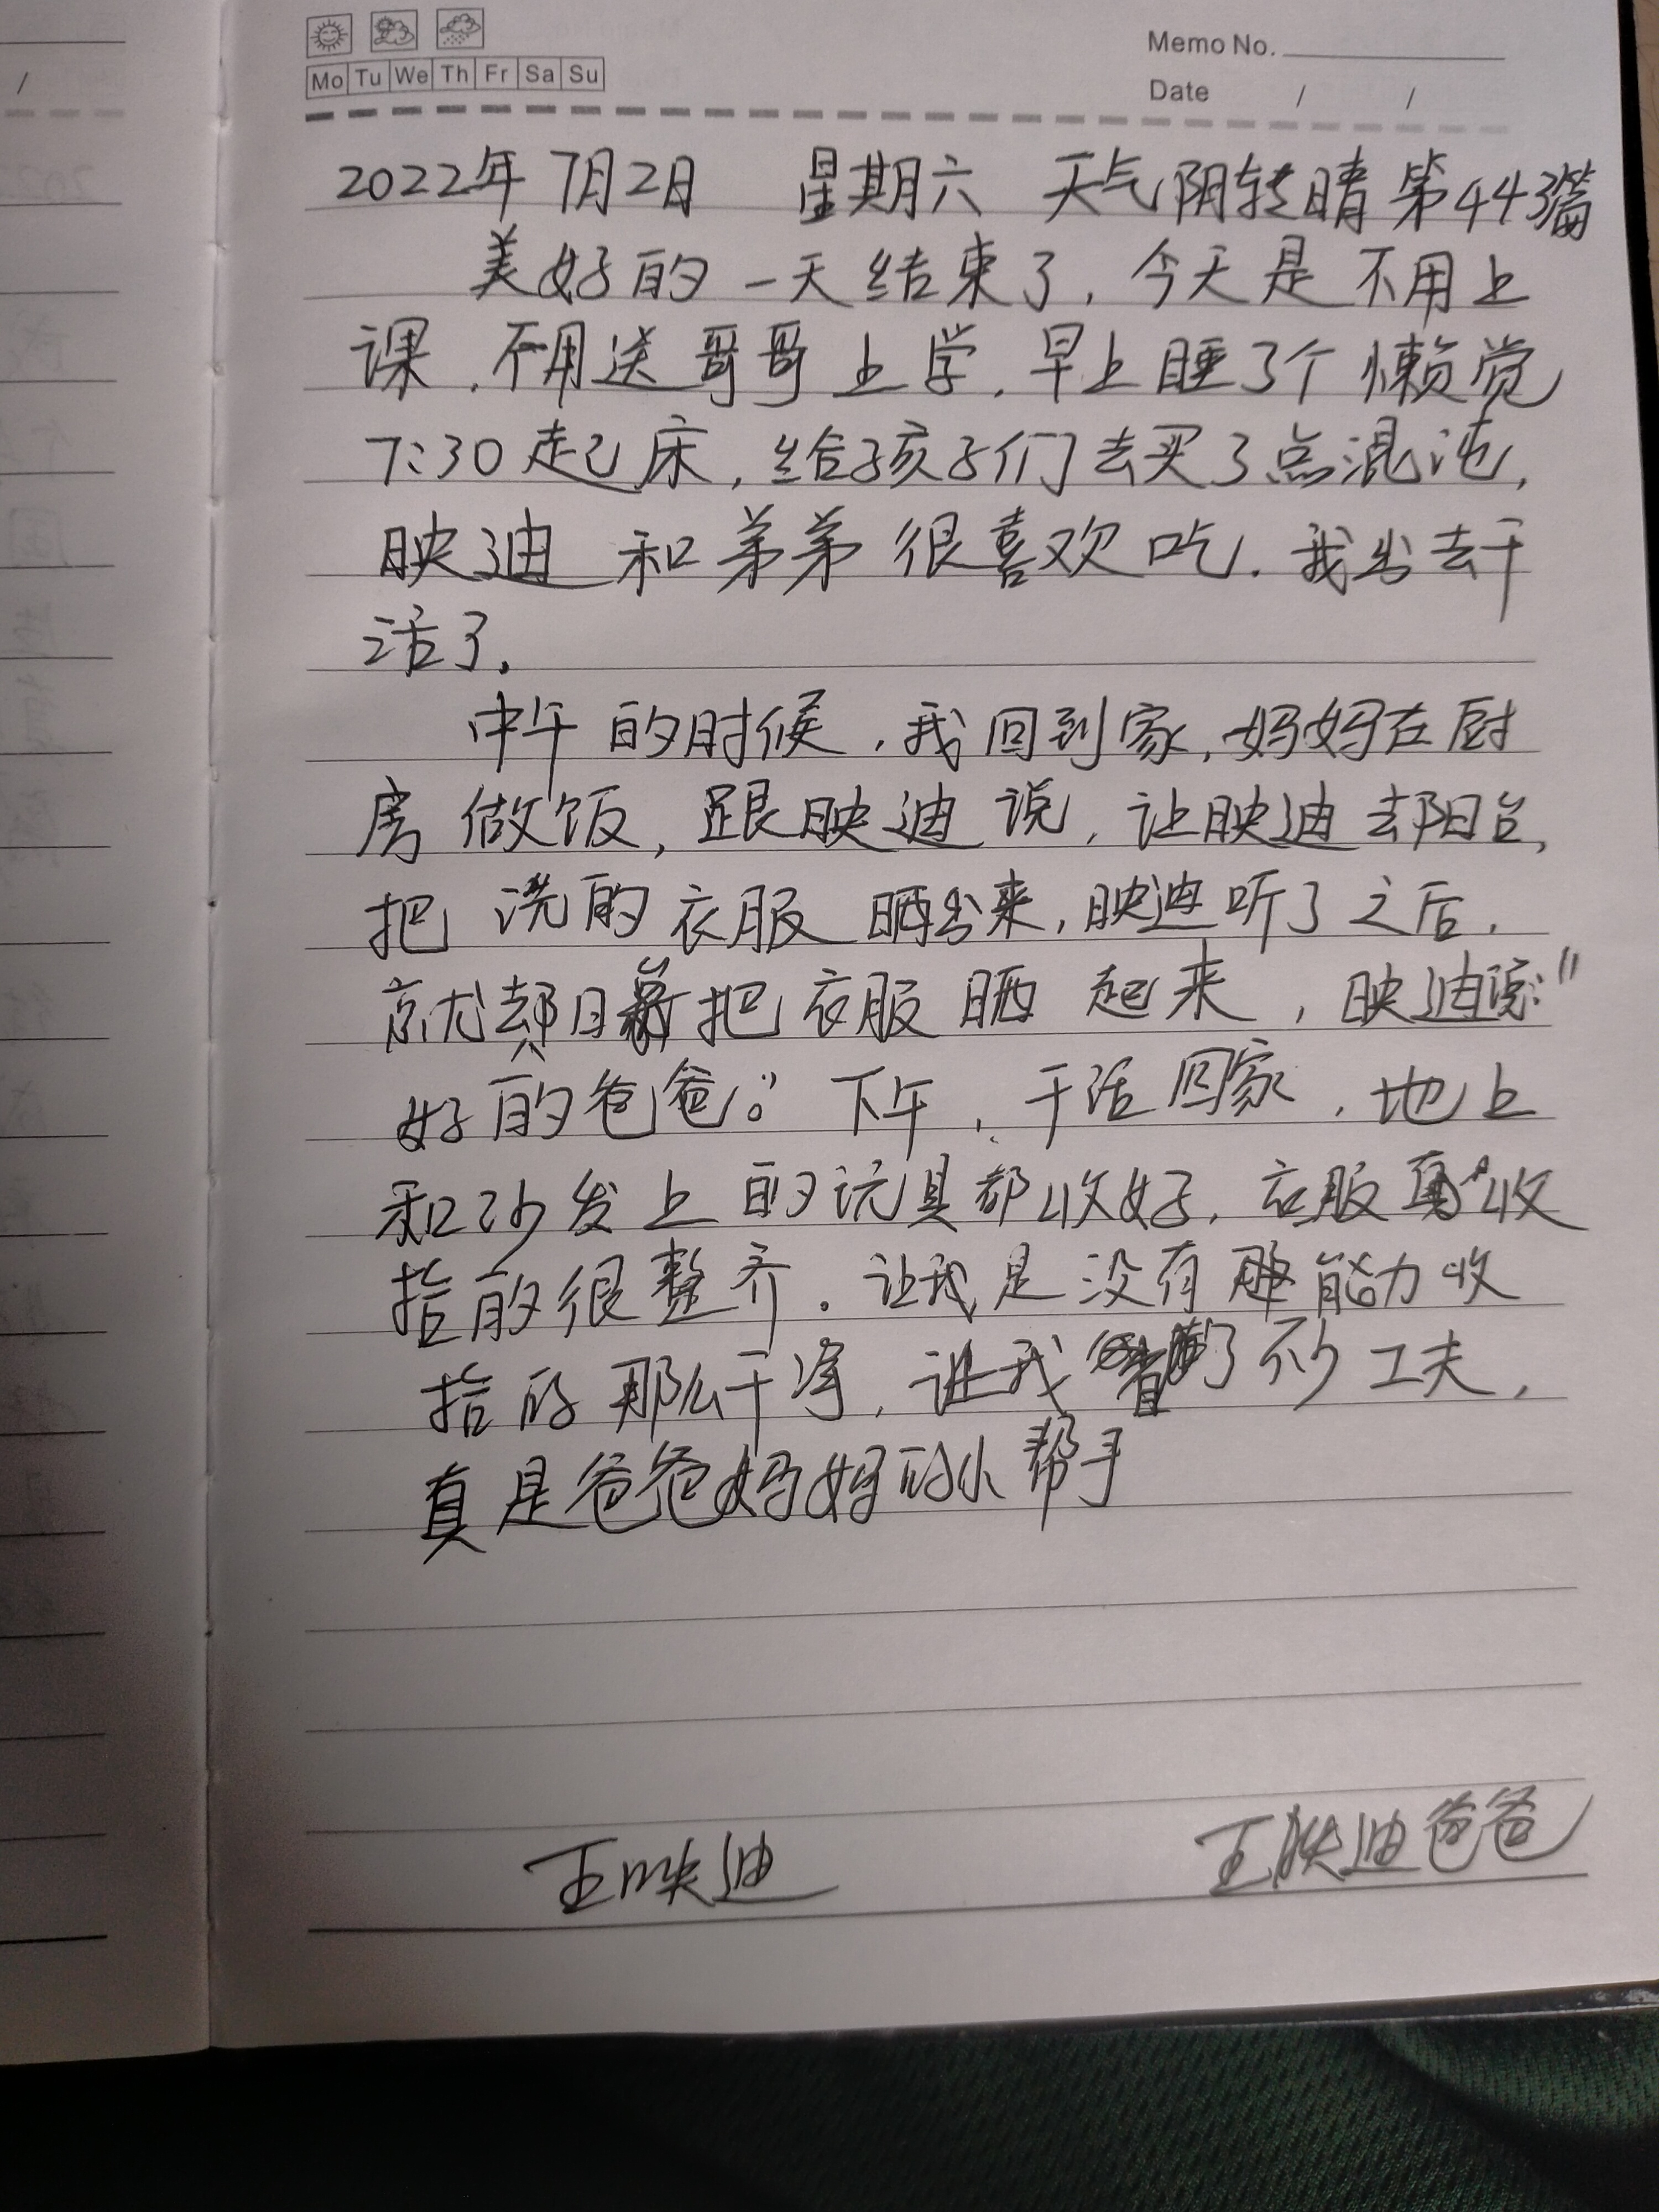 Mo Tu We Th Fr Sa Su
Memo No.
Date / /
2022年7月2日 星期六 天气阴转晴 第443篇
美好的一天结束了,今天是不用上
课,不用送哥哥上学,早上睡了个懒觉
7:30起床,给孩子们去买了点混沌,
映迪和弟弟很喜欢吃.我出去干
活了.
中午的时候,我回到家,妈妈在厨
房做饭,跟映迪说,让映迪去阳台,
把洗的衣服晒出来,映迪听了之后.
就去阳台把衣服晒起来,映迪说:"
好的爸爸。"下午,干活回家,地上
和沙发上的玩具都收好,衣服收
拾的很整齐.让我是没有能力收
拾的那么干净,让我省了不少工夫,
真是爸爸妈妈的小帮手
王映迪 王映迪爸爸